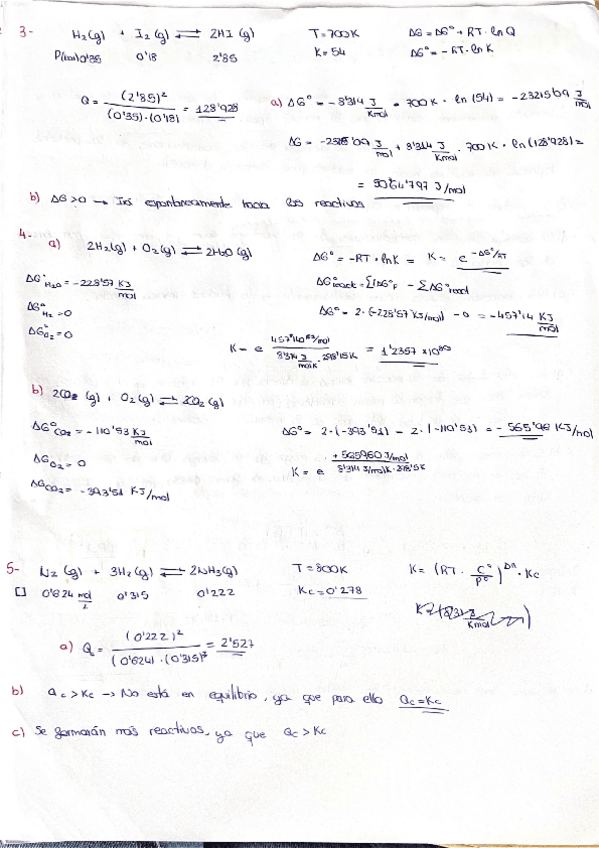 3- H₂(g) + I₂(g) ⇌ 2HI(g) T=700K ΔG=ΔG°+RT·lnQ
P(bar) 0'35 0'18 2'85 K=54 ΔG°=-RT·lnK
Q = (2'85)² / (0'35)·(0'18) = 128'928 a) ΔG° = -8'314 J/Kmol · 700K · ln(54) = -23215'09 J/mol
ΔG = J/mol + 8'314 J/Kmol · 700K · ln(128'928) =
= 5064'797 J/mol
b) ΔG>0 → Irá espontaneamente hacia los reactivos
4-
a) 2H₂(g) + O₂(g) ⇌ 2H₂O(g) ΔG° = -RT·lnK = K = e^(-ΔG°/RT)
ΔG°H₂O = -228'57 KJ/mol
ΔG°H₂ = 0 ΔG° = 2·(-228'57 KJ/mol) - 0 = -457'14 KJ/mol
ΔG°O₂ = 0
K = e = 1'2357 ×10
b) 2CO₂(g) + O₂(g) ⇌ 2CO₂(g)
ΔG°CO₂ = -110'53 KJ/mol ΔG° = 2·(-393'51) - 2·(-110'53) = -565'96 KJ/mol
ΔGO₂ = 0 K = e^(+565960 J/mol / 8'314 J/molK · )
ΔGCO₂ = -393'51 KJ/mol
5- N₂(g) + 3H₂(g) ⇌ 2NH₃(g) T=800K K = (RT · C°/P°)^Δn · Kc
[] 0'624 mol/L 0'315 0'222 Kc=0'278
a) Qc = (0'222)² / (0'624)·(0'315)³ = 2'527
b) Qc>Kc → No está en equilibrio, ya que para ello Qc=Kc
c) Se formarán más reactivos, ya que Qc>Kc